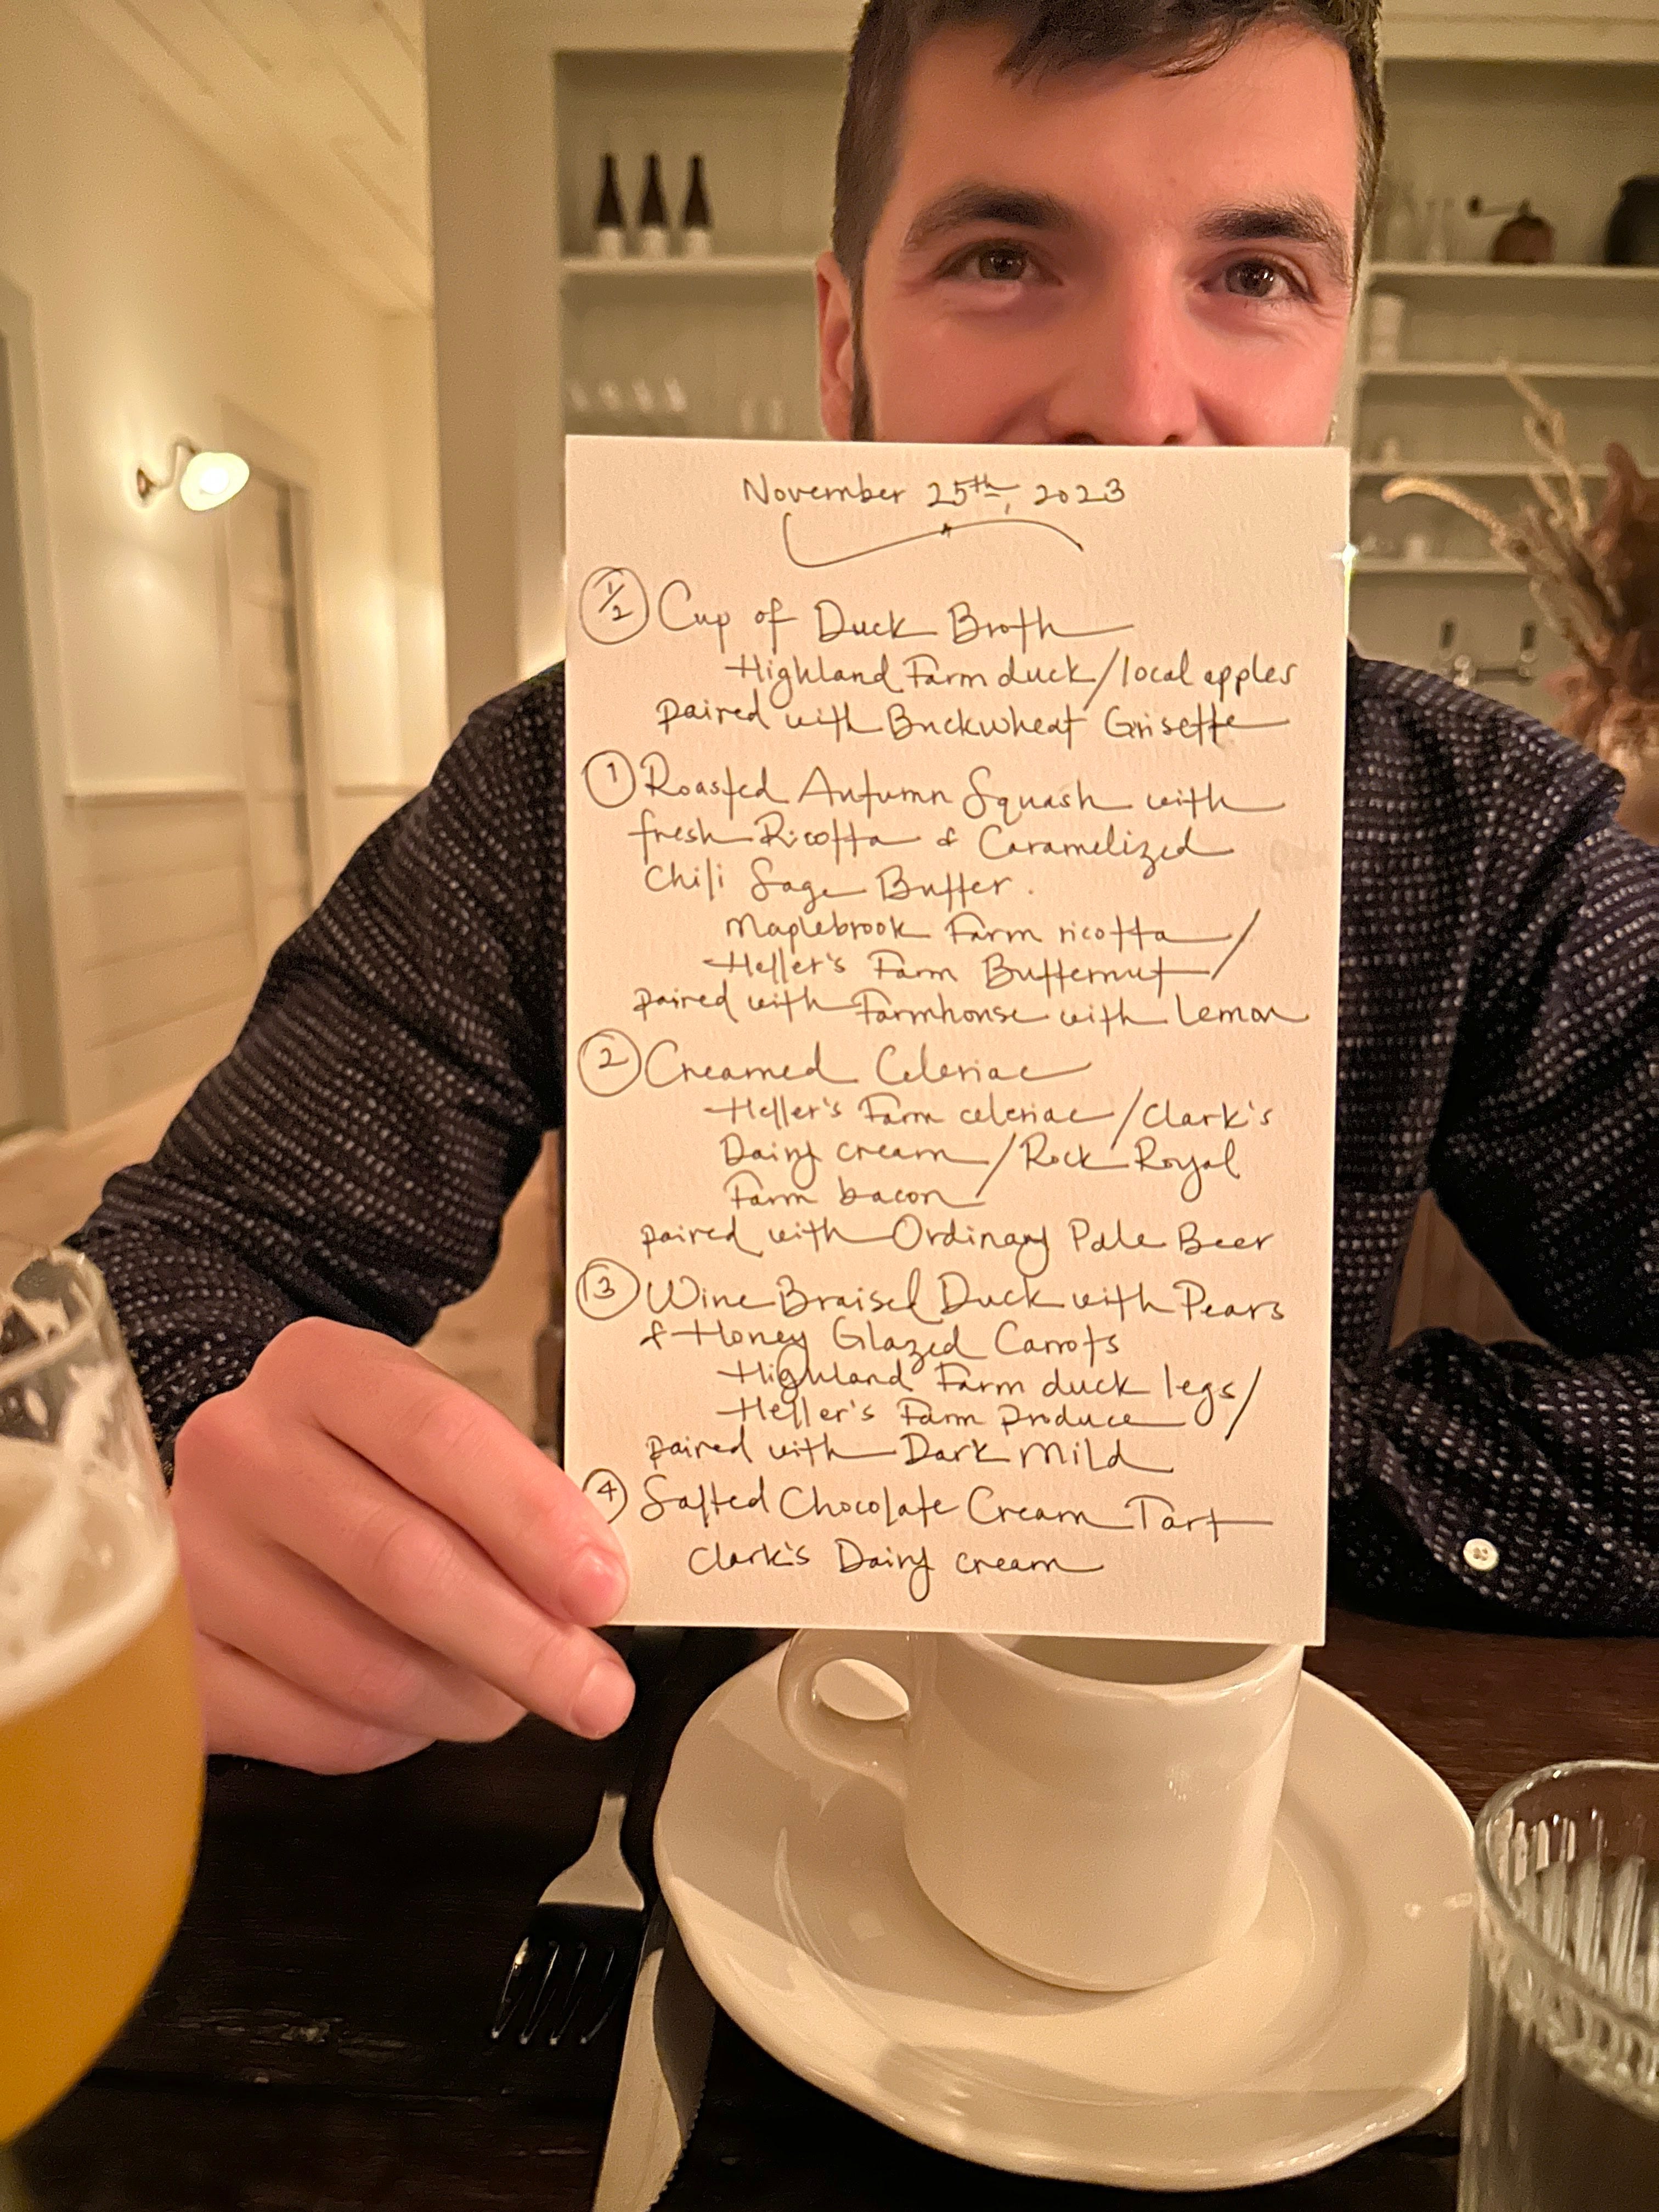 November 25th, 2023
1/2 Cup of Duck Broth
Highland Farm duck/local apples
paired with Buckwheat Grisette
1 Roasted Autumn Squash with
fresh Ricotta & Caramelized
Chili Sage Butter.
Maplebrook Farm ricotta/
Heller's Farm Butternut/
paired with Farmhouse with Lemon
2 Creamed Celeriac
Heller's Farm celeriac/Clark's
Dairy cream/Rock Royal
Farm bacon/
paired with Ordinary Pale Beer
3 Wine Braised Duck with Pears
& Honey Glazed Carrots
Highland Farm duck legs/
Heller's Farm produce/
paired with Dark Mild
4 Salted Chocolate Cream Tart
Clark's Dairy cream